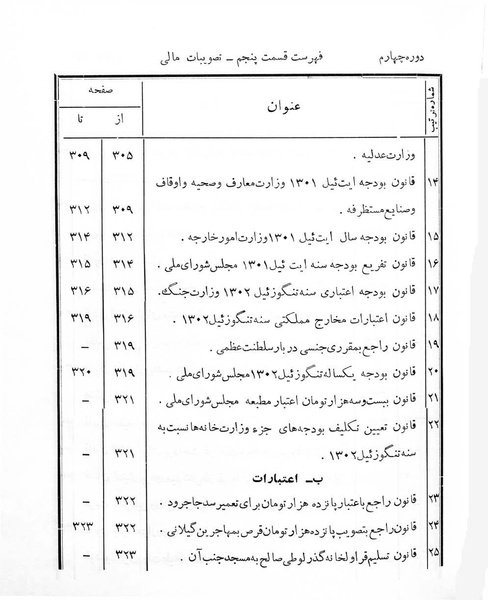 دوره چهارم فهرست قسمت پنجم ـ تصویبات مالی
شماره ترتیب عنوان صفحه
از تا
وزارت عدلیه . ۳۰۵ ۳۰۹
۱۴ قانون بودجه ایت ئیل ۱۳۰۱ وزارت معارف و صحیه و اوقاف
و صنایع مستظرفه . ۳۰۹ ۳۱۲
۱۵ قانون بودجه سال ایت ئیل ۱۳۰۱ وزارت امور خارجه . ۳۱۲ ۳۱۴
۱۶ قانون تفریغ بودجه سنه ایت ئیل ۱۳۰۱ مجلس شورای ملی . ۳۱۴ ۳۱۵
۱۷ قانون بودجه اعتباری سنه تنگوز ئیل ۱۳۰۲ وزارت جنگ . ۳۱۵ ۳۱۶
۱۸ قانون اعتبارات مخارج مملکتی سنه تنگوز ئیل ۱۳۰۲ . ۳۱۶ ۳۱۹
۱۹ قانون راجع بمقرری جنسی دربار سلطنت عظمی . ۳۱۹ –
۲۰ قانون بودجه یکساله تنگوز ئیل ۱۳۰۲ مجلس شورای ملی . ۳۱۹ ۳۲۰
۲۱ قانون بیست و سه هزار تومان اعتبار مطبعه مجلس شورای ملی . ۳۲۱ –
۲۲ قانون تعیین تکلیف بودجه‌های جزء وزارت خانه‌ها نسبت به
سنه تنگوز ئیل ۱۳۰۲ . ۳۲۱ –
ب ـ اعتبارات
۲۳ قانون راجع باعتبار پانزده هزار تومان برای تعمیر سد جاجرود . ۳۲۲ –
۲۴ قانون راجع بتصویب پانزده هزار تومان قرض بمهاجرین گیلانی . ۳۲۲ ۳۲۳
۲۵ قانون تسلیم قراولخانه گذر لوطی صالح به مسجد جنب آن . ۳۲۳ –